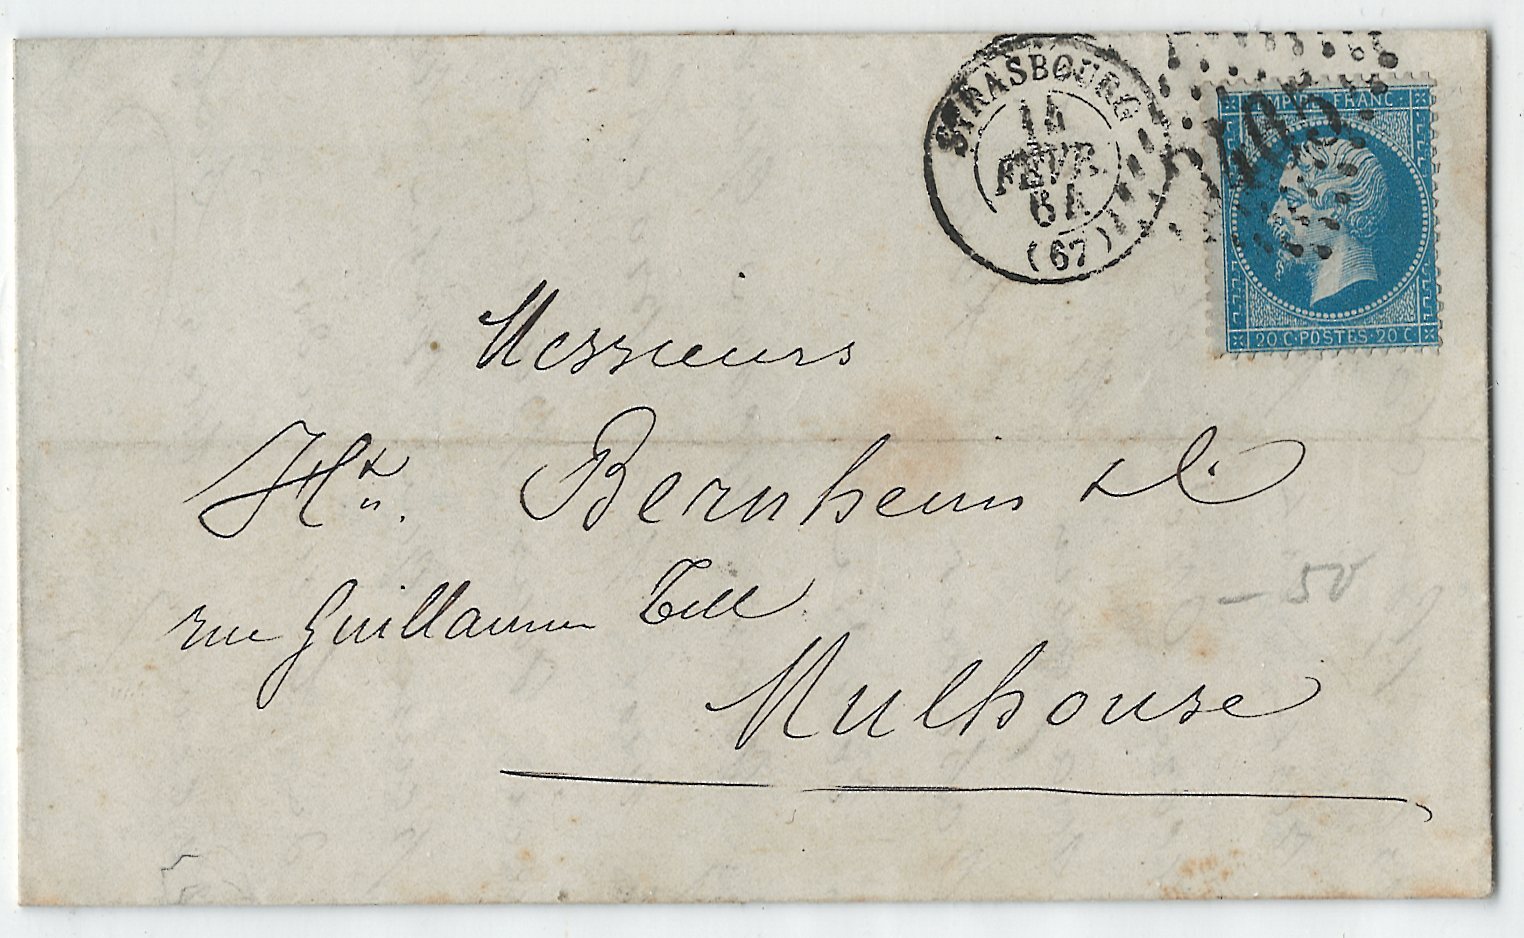 STRASBOURG
14
FEVR.
64
(67)
EMPIRE FRANC
20 C·POSTES·20 C
Messieurs
Bernheim &
rue Guillaume Tell
Mulhouse
50